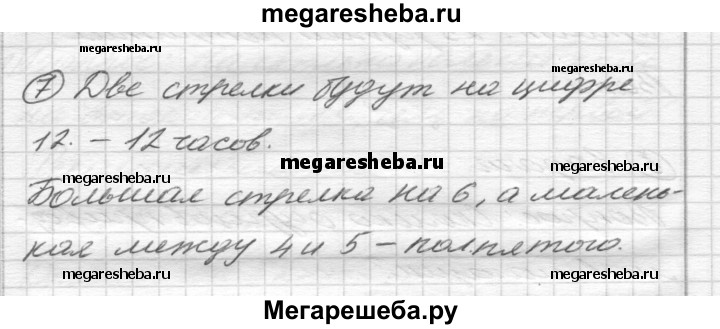 megaresheba.ru
megaresheba.ru
megaresheba.ru
⑦ Две стрелки будут на цифре
12. – 12 часов.
megaresheba.ru
megaresheba.ru
megaresheba.ru
Большая стрелка на 6, а малень-
кая между 4 и 5 – полпятого.
megaresheba.ru
megaresheba.ru
Мегарешеба.ру